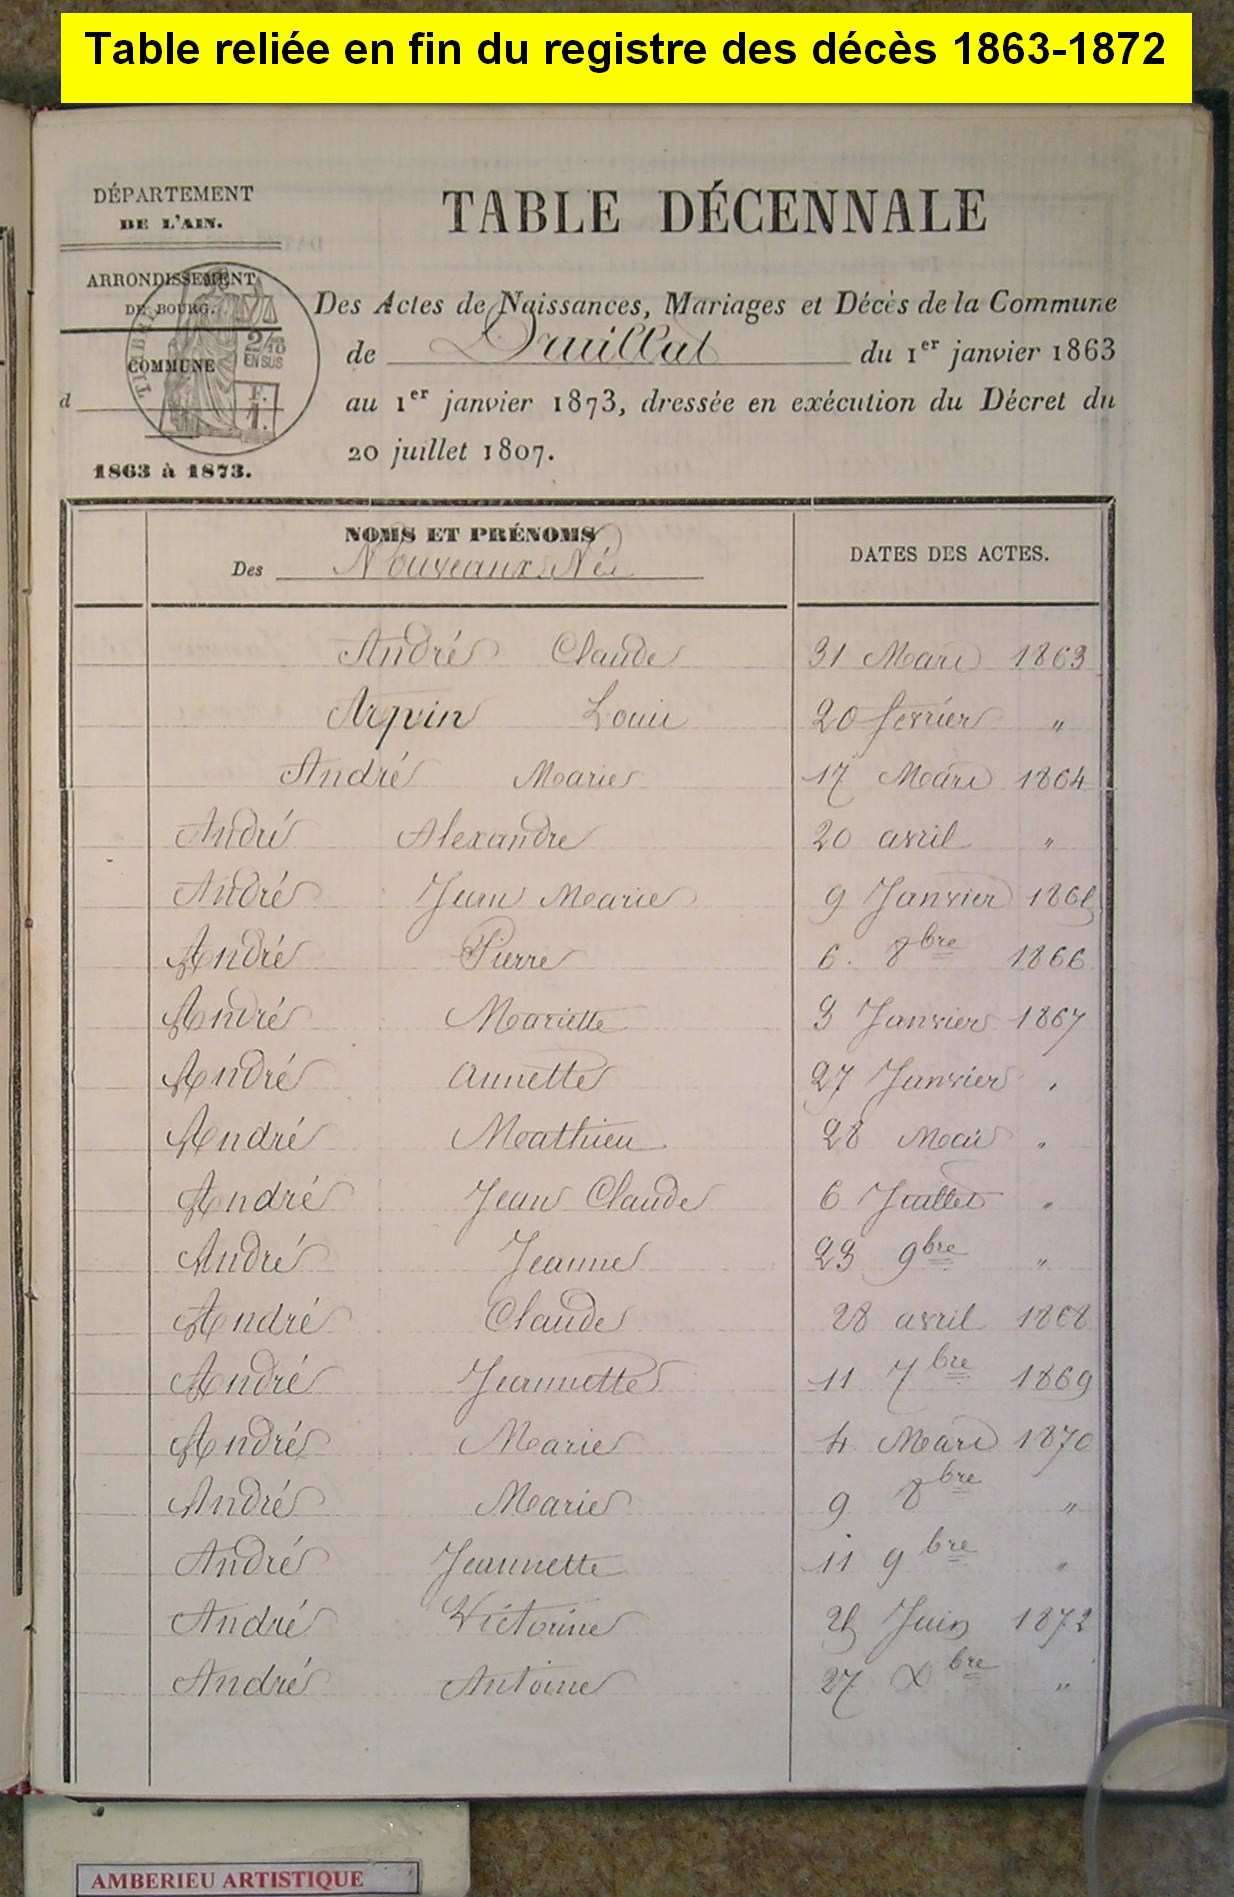 Table reliée en fin du registre des décès 1863-1872
DÉPARTEMENT
DE L'AIN.
ARRONDISSEMENT
DE BOURG.
COMMUNE
d
1863 à 1873.
2/10
EN SUS
F.
1.
TABLE DÉCENNALE
Des Actes de Naissances, Mariages et Décès de la Commune
de Druillat du 1er janvier 1863
au 1er janvier 1873, dressée en exécution du Décret du
20 juillet 1807.
NOMS ET PRÉNOMS
Des Nouveaux Nés
DATES DES ACTES.
André Claude 31 Mars 1863
Arpin Louis 20 fevrier "
André Marie 17 Mars 1864
André Alexandre 20 avril "
André Jean Marie 9 Janvier 1865
André Pierre 6. 8bre 1866
André Mariette 3 Janvier 1867
André Annette 27 Janvier "
André Mathieu 28 Mai "
André Jean Claude 6 Juillet "
André Jeanne 23 9bre "
André Claude 28 avril 1868
André Jeannette 11 7bre 1869
André Marie 4 Mars 1870
André Marie 9 8bre "
André Jeannette 11 9bre "
André Victorine 25 Juin 1872
André Antoine 27 Xbre "
AMBERIEU ARTISTIQUE